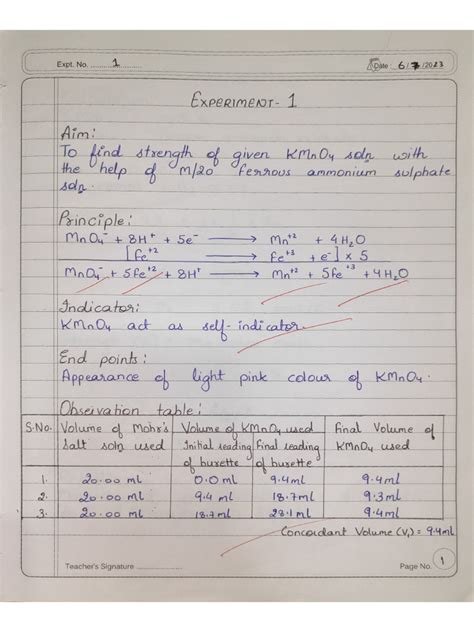 Expt. No. 1
Date : 6/7/2023
EXPERIMENT- 1
Aim:
To find strength of given KMnO4 soln with
the help of M/20 ferrous ammonium sulphate
soln.
Principle:
MnO4⁻ + 8H⁺ + 5e⁻ ⟶ Mn⁺² + 4H2O
[Fe⁺² ⟶ Fe⁺³ + e⁻] × 5
MnO4⁻ + 5Fe⁺² + 8H⁺ ⟶ Mn⁺² + 5Fe⁺³ + 4H2O
Indicator:
KMnO4 act as self-indicator.
End points:
Appearance of light pink colour of KMnO4.
Observation table:
S.No. Volume of Mohr's Volume of KMnO4 used Final Volume of
salt soln used Initial reading Final reading KMnO4 used
of burette of burette
1. 20.00 ml 0.0 ml 9.4ml 9.4 ml
2. 20.00 ml 9.4 ml 18.7ml 9.3ml
3. 20.00 ml 18.7ml 28.1 ml 9.4ml
Concordant Volume (V1) = 9.4ml
Teacher's Signature
Page No. 1